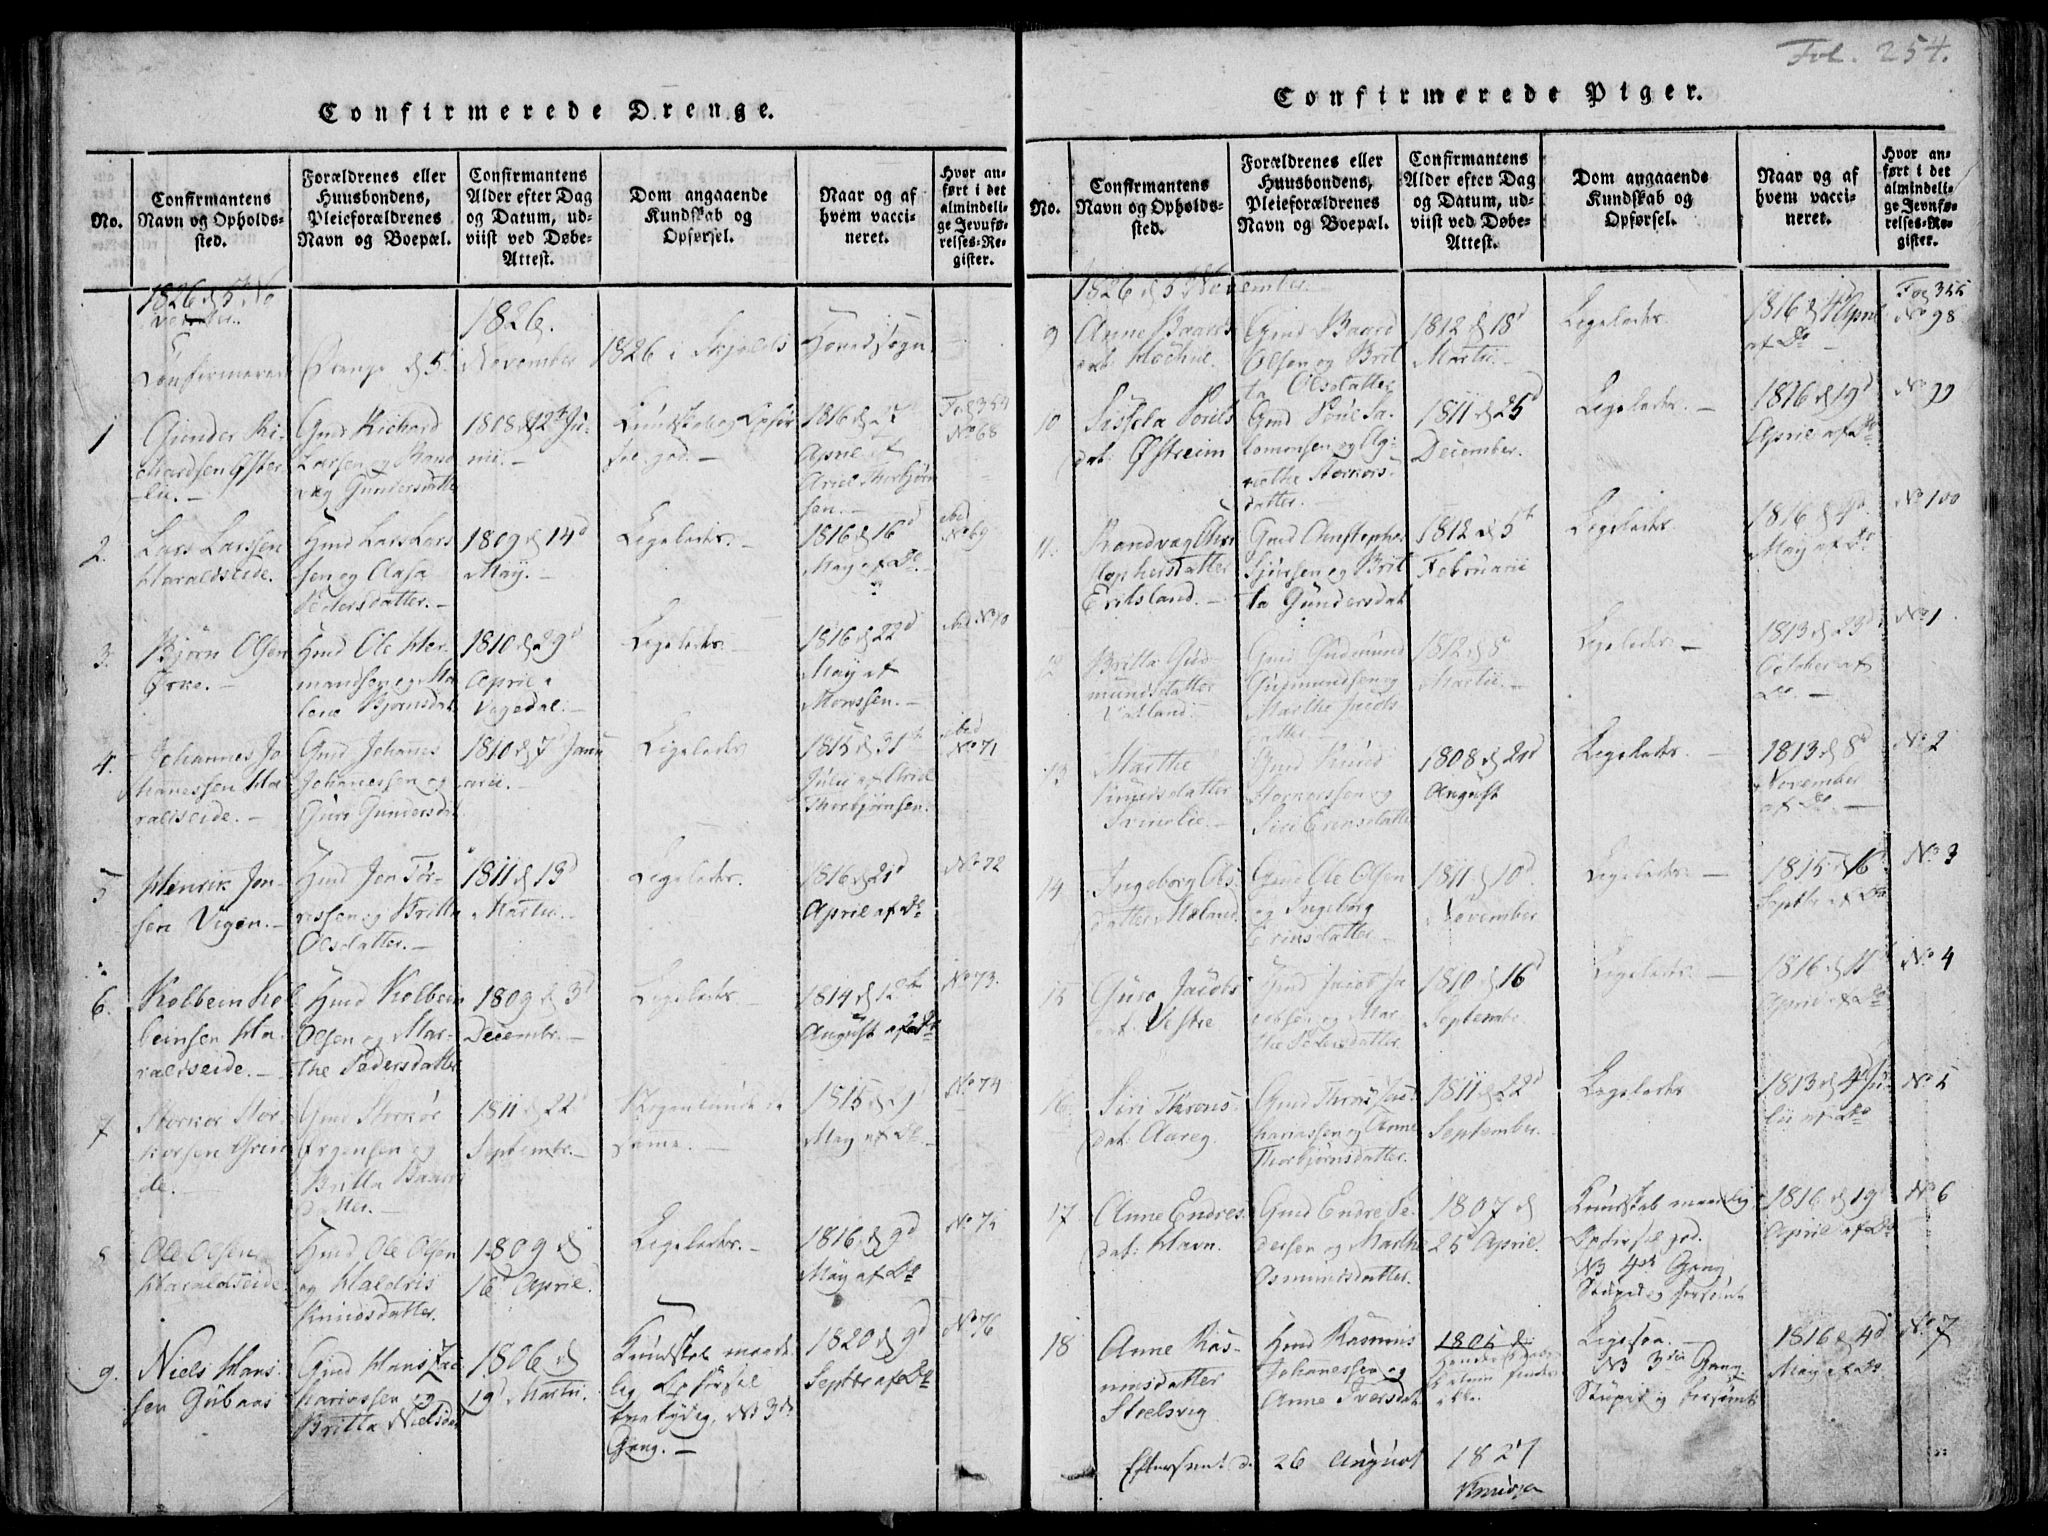 Fol. 254.
Confirmerede Drenge.
No.
Confirmantens
Navn og Opholds-
sted.
Forældrenes eller
Huusbondens,
Pleieforældrenes
Navn og Boepæl.
Confirmantens
Alder efter Dag
og Datum, ud-
viist ved Døbe-
Attest.
Dom angaaende
Kundskab og
Opførsel.
Naar og af
hvem vacci-
neret.
Hvor an-
ført i det
almindeli-
ge Jevnfø-
relses-Re-
gister.
1826 d 5t No
vember.
1826.
Confirmerede Drenge d 5t November 1826 i Skjolds Hovedsogn.
1
Gunder Ri-
chardsen Øster-
lie.
Gmd Richard
Larsen og Rand
vag Gundersdatter
1808 d 12t Ju-
nii.
Kundskab og Opfør
sel god.
1816 d 27
April af
Ariel Thorbjørn
sen.
Fol 354
No 68
2.
Lars Larssen
Haraldseide.
Hmd Lars Lars
sen og Aasa
Pedersdatter.
1809 d 14d
Maÿ.
Ligeledes.
1816 d 16d
May af Do
ibid
No 69
3.
Bjørn Olsen
Ørke.
Hmd Ole Her-
mandsen og Ma
lene Bjørnsdat
1810 d 29d
April
Vagedal.
Ligeledes.
1816 d 22d
May af
Monssen.
ibid No 70
4.
Johannes Jo
hanessen Ha
raldseide.
Gmd Johanes
Johanessen og
Guro Gundersdat
1810 d 7d Janu
arii.
Ligeledes
1815 d 31t
Julii af Ariel
Thorbjørnsen.
ibid
No 71
5
Henrik Jon-
sen Vigen.
Hmd Jon Tør-
ressen og Britta
Olsdatter.
1811 d 13d
Martii.
Ligeledes.
1816 d 21d
April af Do
No 72
6.
Kolbein Kol
beinsen Ha-
raldseide.
Hmd Kolbein
Olsen og Mar-
the Pedersdatter
1809 d 3d
Decembr.
Ligeledes
1814 d 12t
August af Do
No 73.
7
Storkor Stor-
korsen Grin
de.
Gmd Storkor
Britta Baards
datter.
1811 d 22d
Septembr.
samme.
1815 d 9d
May af Do
No 74
8
Ole Olsen
Haraldseide.
Hmd Ole Olsen
og Haldris
Knudsdatter.
1809 d
16d April.
Ligeledes.
1816 d 9d
May af Do
No 75
9.
Niels Hans
sen Gubaas
Gmd Hans Zac
hariassen og
Britta Nielsdat
1806 d
19d Martii.
Kundskab maade
lig Opførsel
tvetydig, NB 3die
Gang.
1820 d 9d
Septbr af Do
No 76
Confirmerede Piger.
No.
Confirmantens
Navn og Opholds-
sted.
Forældrenes eller
Huusbondens,
Pleieforældrenes
Navn og Boepæl.
Confirmantens
Alder efter Dag
og Datum, ud-
viist ved Døbe-
Attest.
Dom angaaende
Kundskab og
Opførsel.
Naar og af
hvem vacci-
neret.
Hvor an-
ført i det
almindeli-
ge Jevnfø-
relses-Re-
gister.
1826 d 5 November.
9
Anne Baards
dat
Gmd Baard
Olsen og Brit
ta Olsdatter
1812 d 18d
Martii.
Ligeledes.
1816 d 4d April
af Do
Fol 355
No 98
10
Sissela Pouls
dat: Østreim
Gmd Poul Sa
lomonsen og Ag-
nethe Storkors-
datter.
1811 d 25d
December.
Ligeledes.
1816 d 19d
April af Do
No 99
11.
Randvag Chri
stophersdatter
Eriksland.
Gmd Christopher
Sjursen og Brit
ta Gundersdat
1812 d 5t
Februarii
Ligeledes
1816 d 4d
May af Do
No 100
12
Britta Gud-
mundsdatter
Valland.
Gmd Gudmund
Gudmundsen og
Marthe Jacobs
datter
1812 d 8
Martii.
Ligeledes.
1813 d 23d
October af
Do.
No 1.
13
Marthe
Knudsdatter
Svinelie.
Gmd Knud
Storkorssen og
Siri Eriksdatter
1808 d 21d
August
Ligeledes
1813 d 8d
November
af Do
No 2
14
Ingeborg Ols-
datter Møland
Gmd Ole Olsen
og Ingeborg
Eriksdatter.
1811 d 10d
November
Ligeledes.
1815 d 16d
Septbr af Do
No 3
15
Guro Jacobs
dat. Vestre
Hmd Jacob Ja
cobsen og Mar-
the Pedersdatter.
1810 d 16d
Septembr
Ligeledes.
1816 d 11t
April af Do
No 4
16.
Siri Throns-
dat: Aareg.
Gmd Thron Zac
hariassen og Anne
Thorbjørnsdatter.
1811 d 22d
September.
Ligeledes
1813 d 4d Ju-
lii af Do
No 5
17
Anne Endres
dat: Havn.
Gmd Endre Pe
dersen og Marthe
Osmundsdatter.
1807 d
25d April.
Kundskab maadelig
Opførsel god.
NB 4de Gang
Stupid og forsømt
1816 d 19
April af Do
No 6
18
Anne Ras-
musdatter
Stoelsvig
Hmd Rasmus
Johanessen og
Anne Iversdat
1805 d
Hendes Daab
findes
ikke.
Ligesaa.
NB 3die Gang
Stupid og forsømt
1816 d 4d
May af Do
No 7
Efterseet d. 26 August 1827